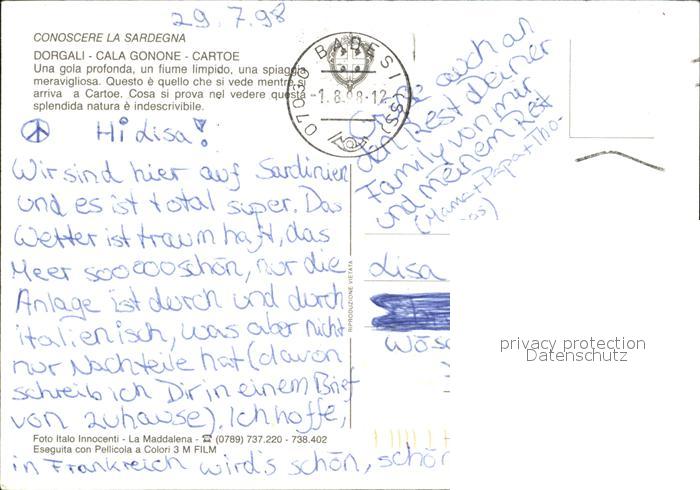 29.7.98
CONOSCERE LA SARDEGNA
DORGALI - CALA GONONE - CARTOE
Una gola profonda, un fiume limpido, una spiaggia
meravigliosa. Questo è quello che si vede mentre si
arriva a Cartoe. Cosa si prova nel vedere questa
splendida natura è indescrivibile.
07030 BADESI (SS)
-1.8.98-12
Hi Lisa!
Wir sind hier auf Sardinien
und es ist total super. Das
Wetter ist traumhaft, das
Meer sooooooschön, nur die
Anlage ist durch und durch
italienisch, was aber nicht
nur Nachteile hat (davon
schreib ich Dir in einem Brief
von zuhause). Ich hoffe,
in Frankreich wird's schön, schön
Foto Italo Innocenti - La Maddalena - ☎ (0789) 737.220 - 738.402
Eseguita con Pellicola a Colori 3 M FILM
RIPRODUZIONE VIETATA
auch an
den Rest Deiner
Family von mir
und meinem Rest
(Mama+Papa+Tho-
Lisa
privacy protection
Datenschutz